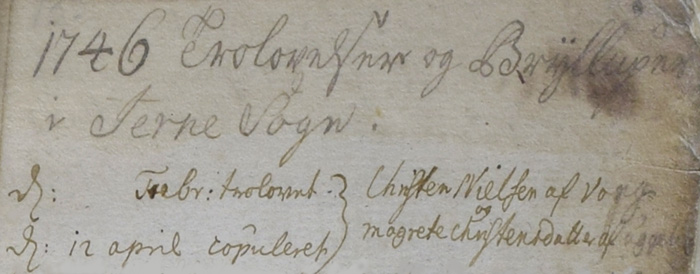 1746 Trolovelser og Brÿlluper
i Terne Sogn.
d: Febr: trolovet. } Christen Nielsen af
d: 12 april copuleret } og magrete Christensdatter af